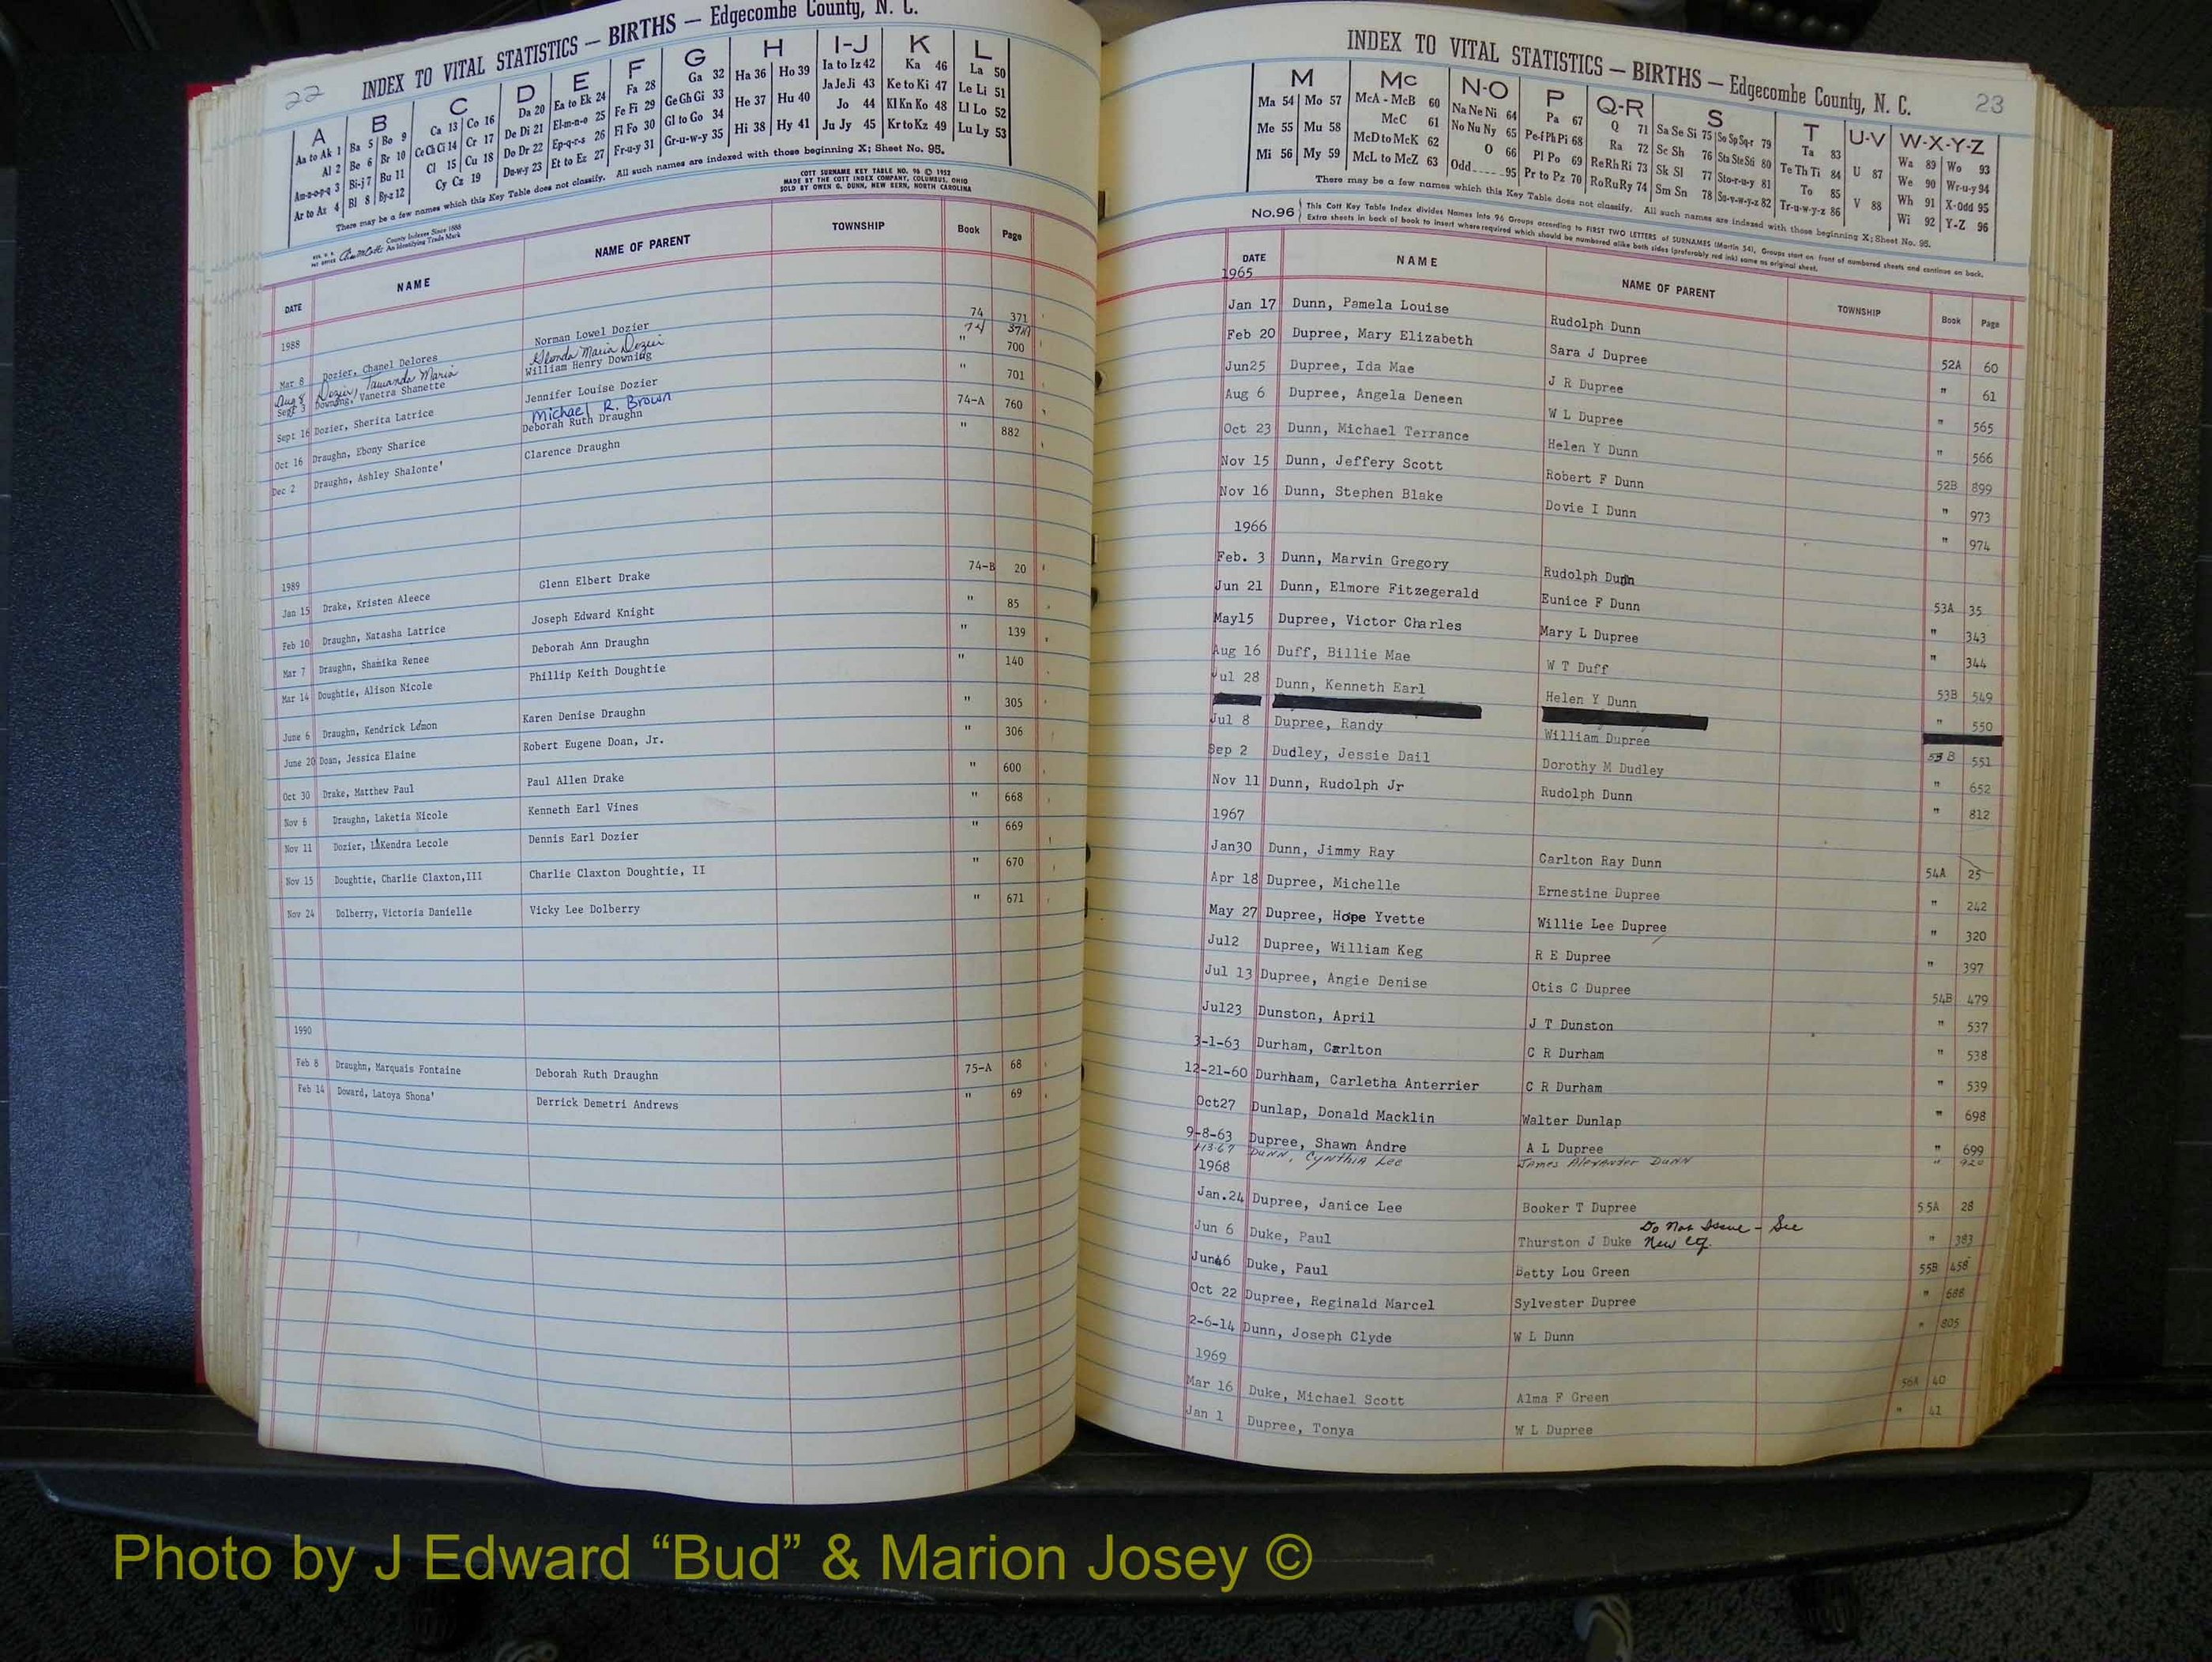 22
INDEX TO VITAL STATISTICS — BIRTHS — Edgecombe County, N. C.
A B C D E F G H I-J K L
Aa to Ak 1 Ba 5 Bo 9 Ca 13 Co 16 Da 20 Ea to Ek 24 Fa 28 Ga 32 Ha 36 Ho 39 Ia to Iz 42 Ka 46 La 50
Al 2 Be 6 Br 10 Ce Ch Ci 14 Cr 17 De Di 21 El-m-n-o 25 Fe Fi 29 Ge Gh Gi 33 He 37 Hu 40 Ja Je Ji 43 Ke to Ki 47 Le Li 51
Am-n-o-p-q 3 Bi-j 7 Bu 11 Cl 15 Cu 18 Do Dr 22 Ep-q-r-s 26 Fl Fo 30 Gl to Go 34 Hi 38 Hy 41 Jo 44 Kl Kn Ko 48 Ll Lo 52
Ar to Az 4 Bl 8 By-z 12 Cy Cz 19 Du-w-y 23 Et to Ez 27 Fr-u-y 31 Gr-u-w-y 35 Ju Jy 45 Kr to Kz 49 Lu Ly 53
There may be a few names which this Key Table does not classify. All such names are indexed with those beginning X; Sheet No. 95.
COTT SURNAME KEY TABLE NO. 96 © 1952
MADE BY THE COTT INDEX COMPANY, COLUMBUS, OHIO
SOLD BY OWEN G. DUNN, NEW BERN, NORTH CAROLINA
County Indexes Since 1888
An Identifying Trade Mark
DATE NAME NAME OF PARENT TOWNSHIP Book Page
1988
Mar 8 Dozier, Chanel Delores Norman Lowel Dozier 74 371
Aug 8 Dozier, Tawanda Maria Glenda Maria Dozier 74
Sept 3 Downing, Vanetra Shanette William Henry Downing " 700
Sept 16 Dozier, Sherita Latrice Jennifer Louise Dozier " 701
Michael R. Brown
Oct 16 Draughn, Ebony Sharice Deborah Ruth Draughn 74-A 760
Dec 2 Draughn, Ashley Shalonte' Clarence Draughn " 882
1989
Jan 15 Drake, Kristen Aleece Glenn Elbert Drake 74-B 20
Feb 10 Draughn, Natasha Latrice Joseph Edward Knight " 85
Mar 7 Draughn, Shamika Renee Deborah Ann Draughn " 139
Mar 14 Doughtie, Alison Nicole Phillip Keith Doughtie " 140
June 6 Draughn, Kendrick Lemon Karen Denise Draughn " 305
June 20 Doan, Jessica Elaine Robert Eugene Doan, Jr. " 306
Oct 30 Drake, Matthew Paul Paul Allen Drake " 600
Nov 6 Draughn, Laketia Nicole Kenneth Earl Vines " 668
Nov 11 Dozier, LaKendra Lecole Dennis Earl Dozier " 669
Nov 15 Doughtie, Charlie Claxton,III Charlie Claxton Doughtie, II " 670
Nov 24 Dolberry, Victoria Danielle Vicky Lee Dolberry " 671
1990
Feb 8 Draughn, Marquais Fontaine Deborah Ruth Draughn 75-A 68
Feb 14 Doward, Latoya Shona' Derrick Demetri Andrews " 69
INDEX TO VITAL STATISTICS — BIRTHS — Edgecombe County, N. C. 23
M Mc N-O P Q-R S T U-V W-X-Y-Z
Ma 54 Mo 57 McA - McB 60 Na Ne Ni 64 Pa 67 Q 71 Sa Se Si 75 So Sp Sq-r 79 Ta 83 U 87 Wa 89 Wo 93
Me 55 Mu 58 McC 61 No Nu Ny 65 Pe-f Ph Pi 68 Ra 72 Sc Sh 76 Sta Ste Sti 80 Te Th Ti 84 V 88 We 90 Wr-u-y 94
Mi 56 My 59 McD to McK 62 O 66 Pl Po 69 Re Rh Ri 73 Sk Sl 77 Sto-r-u-y 81 To 85 Wh 91 X-Odd 95
McL to McZ 63 Odd 95 Pr to Pz 70 Ro Ru Ry 74 Sm Sn 78 Su-v-w-y-z 82 Tr-u-w-y-z 86 Wi 92 Y-Z 96
There may be a few names which this Key Table does not classify. All such names are indexed with those beginning X; Sheet No. 95.
No.96 This Cott Key Table Index divides Names into 96 Groups according to FIRST TWO LETTERS of SURNAMES (Martin 54), Groups start on front of numbered sheets and continue on back.
Extra sheets in back of book to insert where required which should be numbered alike both sides (preferably red ink) same as original sheet.
DATE NAME NAME OF PARENT TOWNSHIP Book Page
1965
Jan 17 Dunn, Pamela Louise Rudolph Dunn 52A 60
Feb 20 Dupree, Mary Elizabeth Sara J Dupree " 61
Jun25 Dupree, Ida Mae J R Dupree " 565
Aug 6 Dupree, Angela Deneen W L Dupree " 566
Oct 23 Dunn, Michael Terrance Helen Y Dunn 52B 899
Nov 15 Dunn, Jeffery Scott Robert F Dunn " 973
Nov 16 Dunn, Stephen Blake Dovie I Dunn " 974
1966
Feb. 3 Dunn, Marvin Gregory Rudolph Dunn 53A 35
Jun 21 Dunn, Elmore Fitzegerald Eunice F Dunn " 343
May15 Dupree, Victor Charles Mary L Dupree " 344
Aug 16 Duff, Billie Mae W T Duff 53B 549
Jul 28 Dunn, Kenneth Earl Helen Y Dunn " 550
Jul 8 Dupree, Randy William Dupree 53 B 551
Sep 2 Dudley, Jessie Dail Dorothy M Dudley " 652
Nov 11 Dunn, Rudolph Jr Rudolph Dunn " 812
1967
Jan30 Dunn, Jimmy Ray Carlton Ray Dunn 54A 25
Apr 18 Dupree, Michelle Ernestine Dupree " 242
May 27 Dupree, Hope Yvette Willie Lee Dupree " 320
Jul2 Dupree, William Keg R E Dupree " 397
Jul 13 Dupree, Angie Denise Otis C Dupree 54B 479
Jul23 Dunston, April J T Dunston " 537
3-1-63 Durham, Carlton C R Durham " 538
12-21-60 Durhham, Carletha Anterrier C R Durham " 539
Oct27 Dunlap, Donald Macklin Walter Dunlap " 698
9-8-63 Dupree, Shawn Andre A L Dupree " 699
Dunn, Cynthia Lee James Alexander Dunn " 920
1968
Jan.24 Dupree, Janice Lee Booker T Dupree 55A 28
Do Not Issue - See
Jun 6 Duke, Paul Thurston J Duke New Ctf. " 383
Jun 6 Duke, Paul Betty Lou Green 55B 458
Oct 22 Dupree, Reginald Marcel Sylvester Dupree " 686
2-6-14 Dunn, Joseph Clyde W L Dunn " 805
1969
Mar 16 Duke, Michael Scott Alma F Green 56A 40
Jan 1 Dupree, Tonya W L Dupree " 41
Photo by J Edward “Bud” & Marion Josey ©